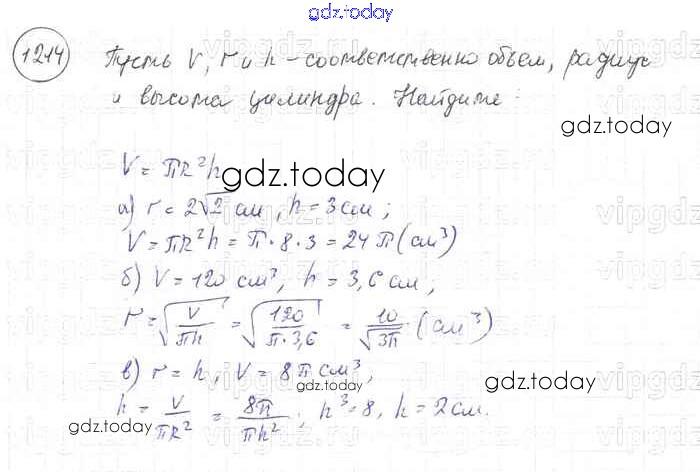 gdz.today
1214 Пусть V, r и h – соответственно объем, радиус
и высота цилиндра. Найдите:
gdz.today
V = πR²h
gdz.today
а) r = 2√2 см, h = 3 см;
V = πR²h = π · 8 · 3 = 24π (см³)
б) V = 120 см³, h = 3,6 см,
r = √(V/πh) = √(120/π·3,6) = 10/√3π (см³)
в) r = h, V = 8π см³,
gdz.today
gdz.today
h = V/πR² = 8π/πh²; h³ = 8, h = 2 см.
gdz.today